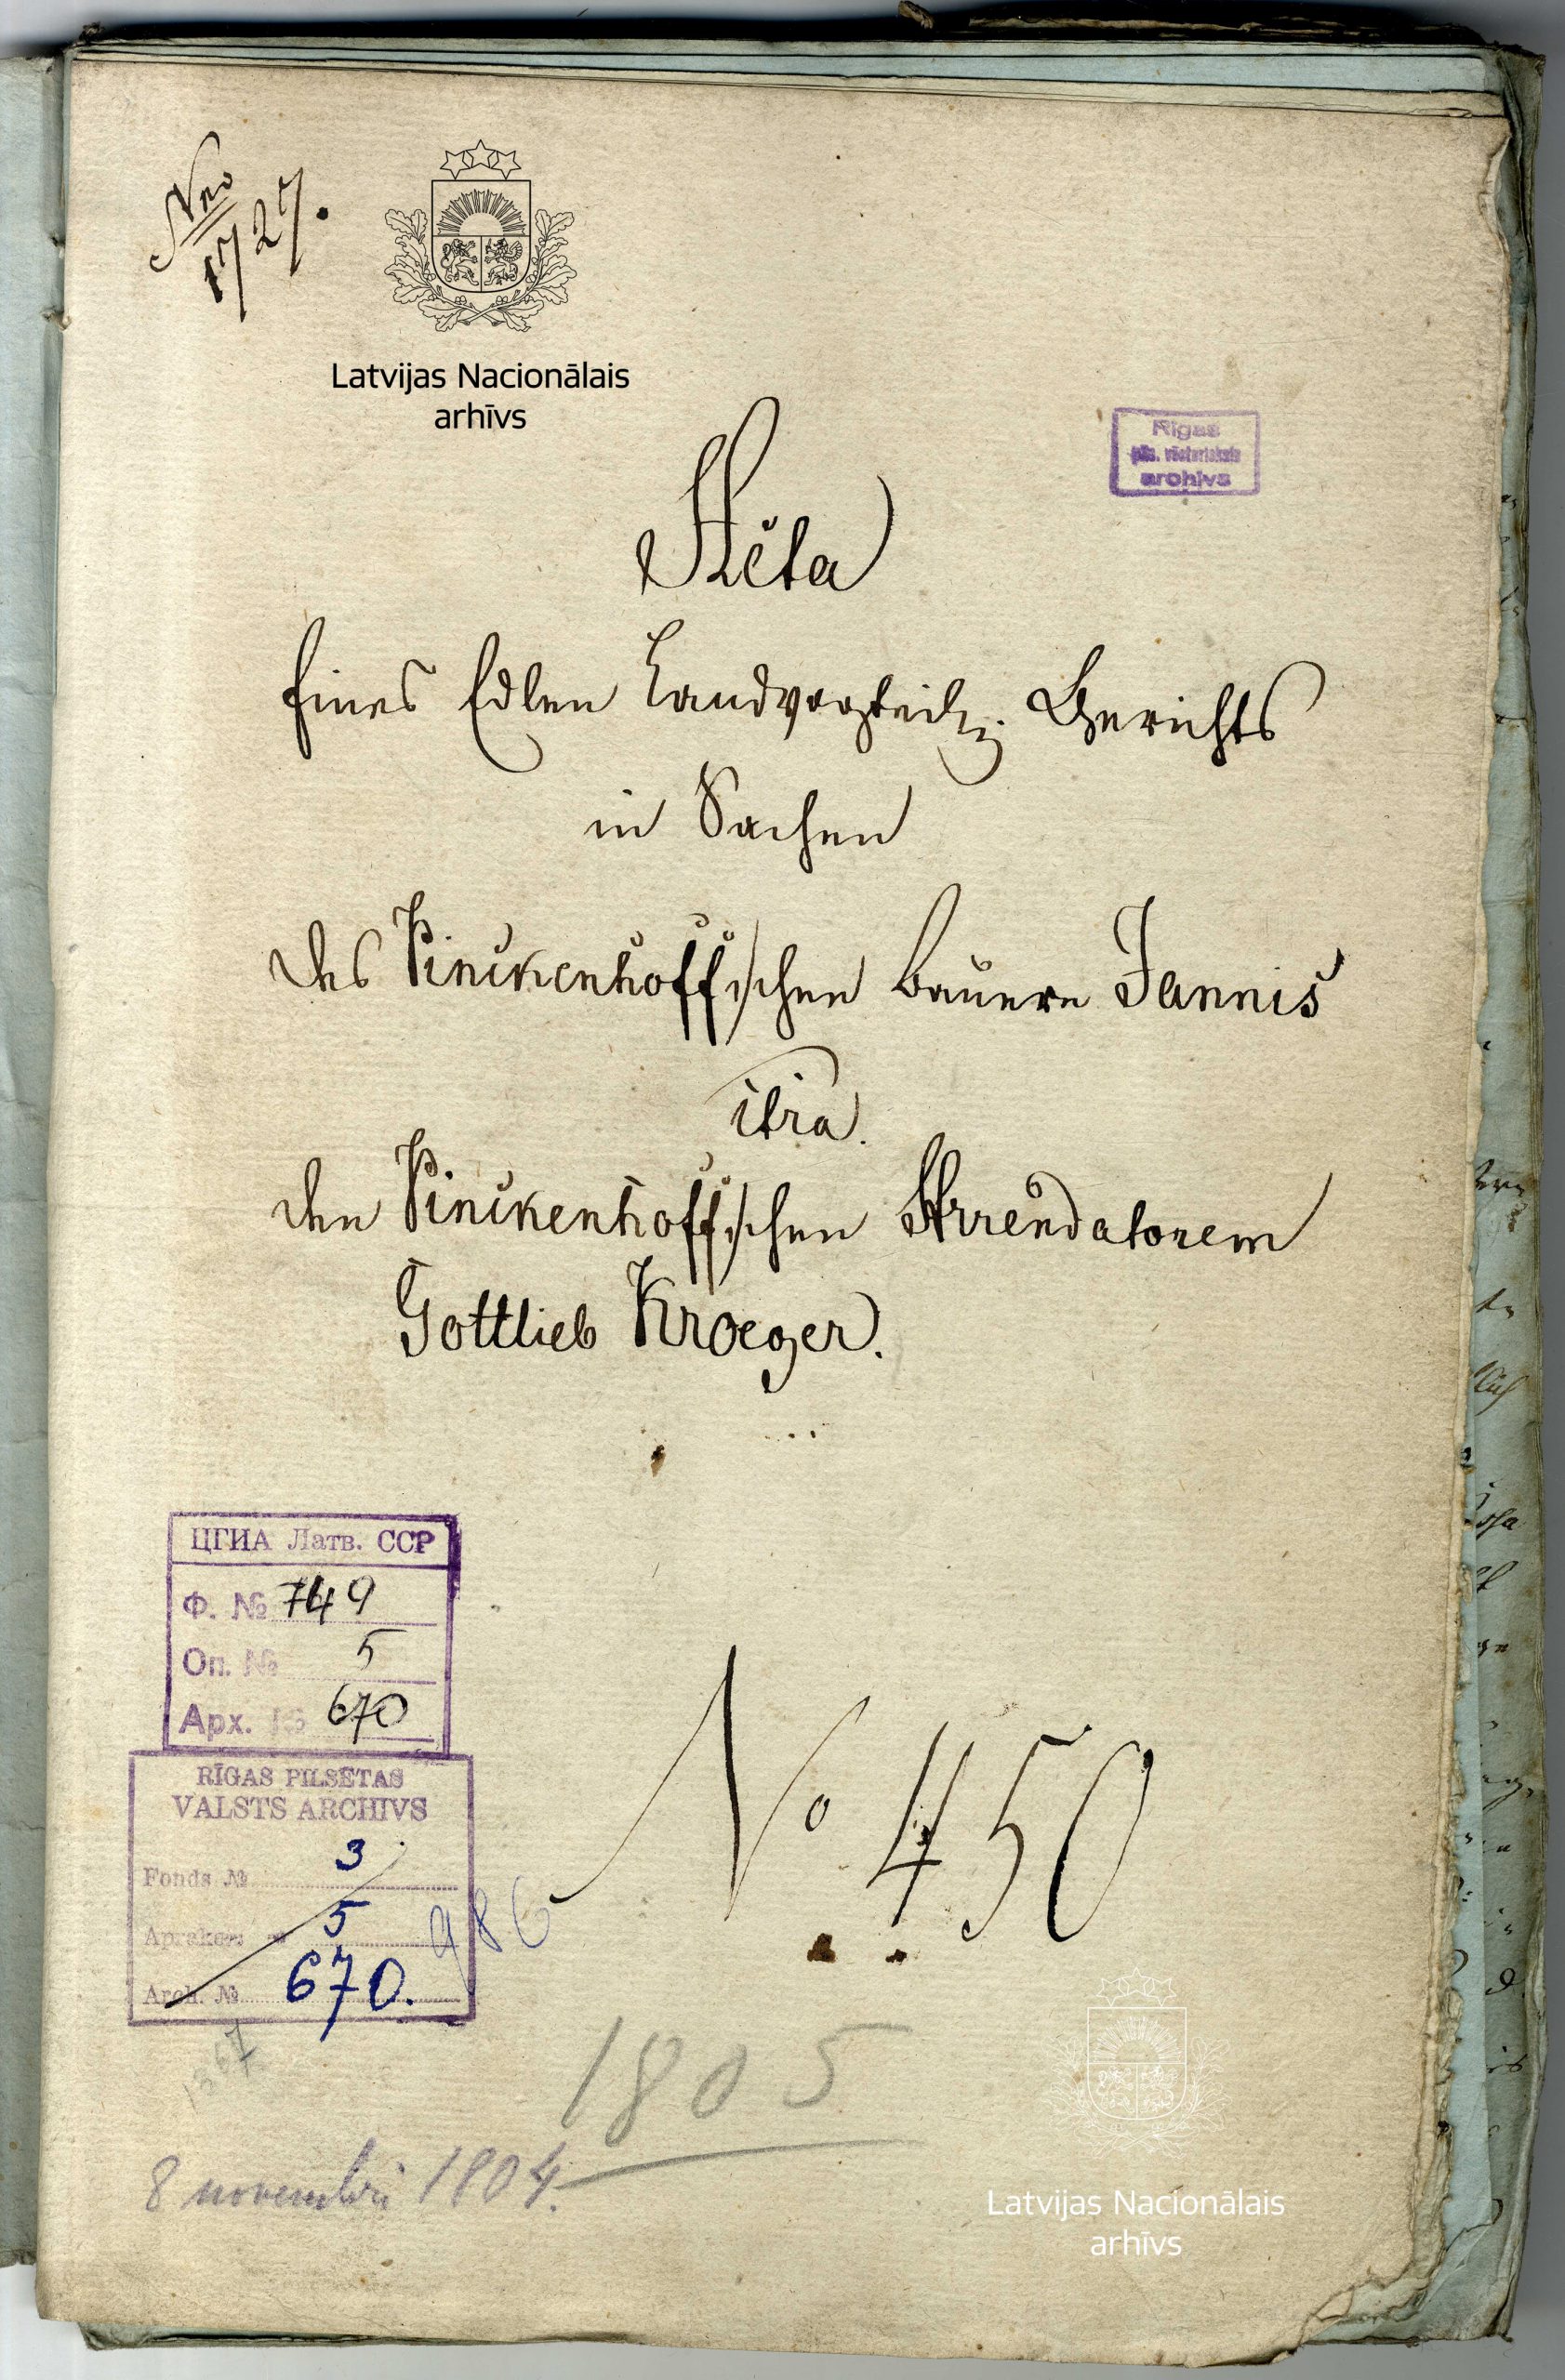 Nro
1727.
Latvijas Nacionālais
arhīvs
Rīgas
arohivs
Acta
Eines Edlen Landvogteilg. Gerichts
in Sachen
des Pinckenhoffschen Bauern Jannis
ctra.
den Pinckenhoffschen Arrendatorem
Gottlieb Kroeger.
ЦГИА Латв. ССР
Ф. № 749
Оп. № 5
Арх. № 670
RĪGAS PILSĒTAS
VALSTS ARCHIVS
Fonds № 3
5
Arch. № 670.
986
No 450
1367
1805
8 novembri 1804.
Latvijas Nacionālais
arhīvs